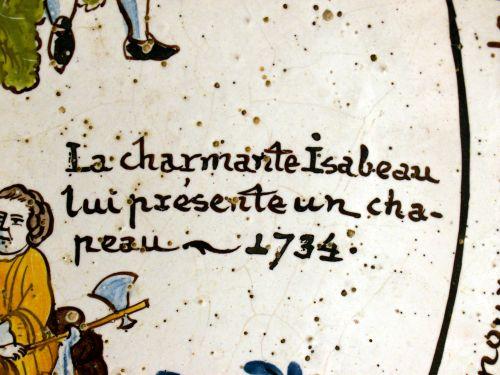 La charmante Isabeau
lui présente un cha-
peau ~ 1734.